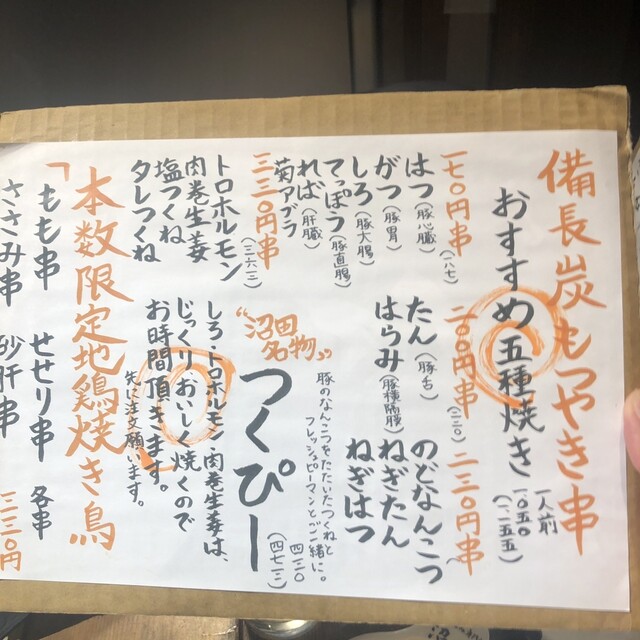 備長炭もつやき串
おすすめ五種焼き
一人前
一〇五〇
(一一五五)
一七〇円串
(一八七)
はつ(豚心臓)
がつ(豚胃)
しろ(豚大腸)
てっぽう(豚直腸)
ればー(肝臓)
菊アブラ
二〇〇円串
(二二〇)
たん(豚舌)
はらみ(豚横隔膜)
二三〇円串
のどなんこつ
ねぎたん
ねぎはつ
三三〇円串
(三六三)
トロホルモン
肉巻生姜
塩つくね
タレつくね
"沼田名物"
つくぴー
豚のなんこつをたたいたつくねと
フレッシュピーマンとご一緒に。
四三〇
(四七三)
しろ・トロホルモン・肉巻生姜は、
じっくりおいしく焼くので
お時間頂きます。
先に注文願います。
本数限定地鶏焼き鳥
「もも串
せせり串
各串
ささみ串
砂肝串
三三〇円